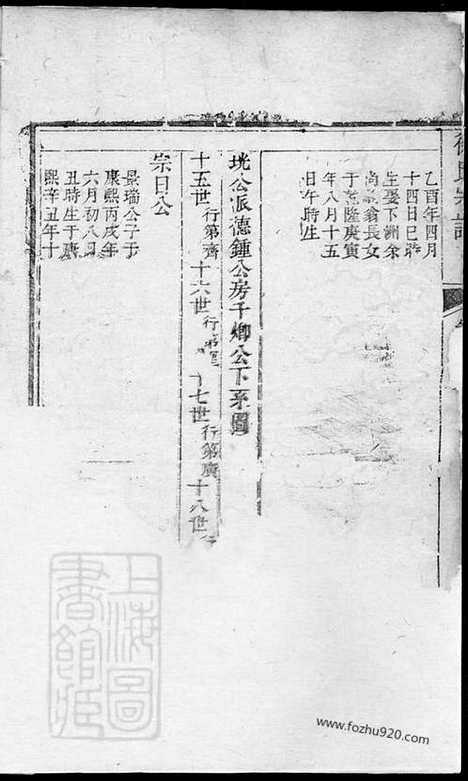 乙酉年四月
十四日巳時
生娶下洲余
尚 翁長女
于乾隆庚寅
年八月十五
日午時生
珖公派德鍾公房千卿公下系圖
十五世行第齊 十六世行第 十七世行第廣 十八世行
崇日公
景瑞公子于
康熙丙戌年
六月初八日
丑時生于康
熙辛丑年十
上海圖
書館藏
www.fozhu920.com